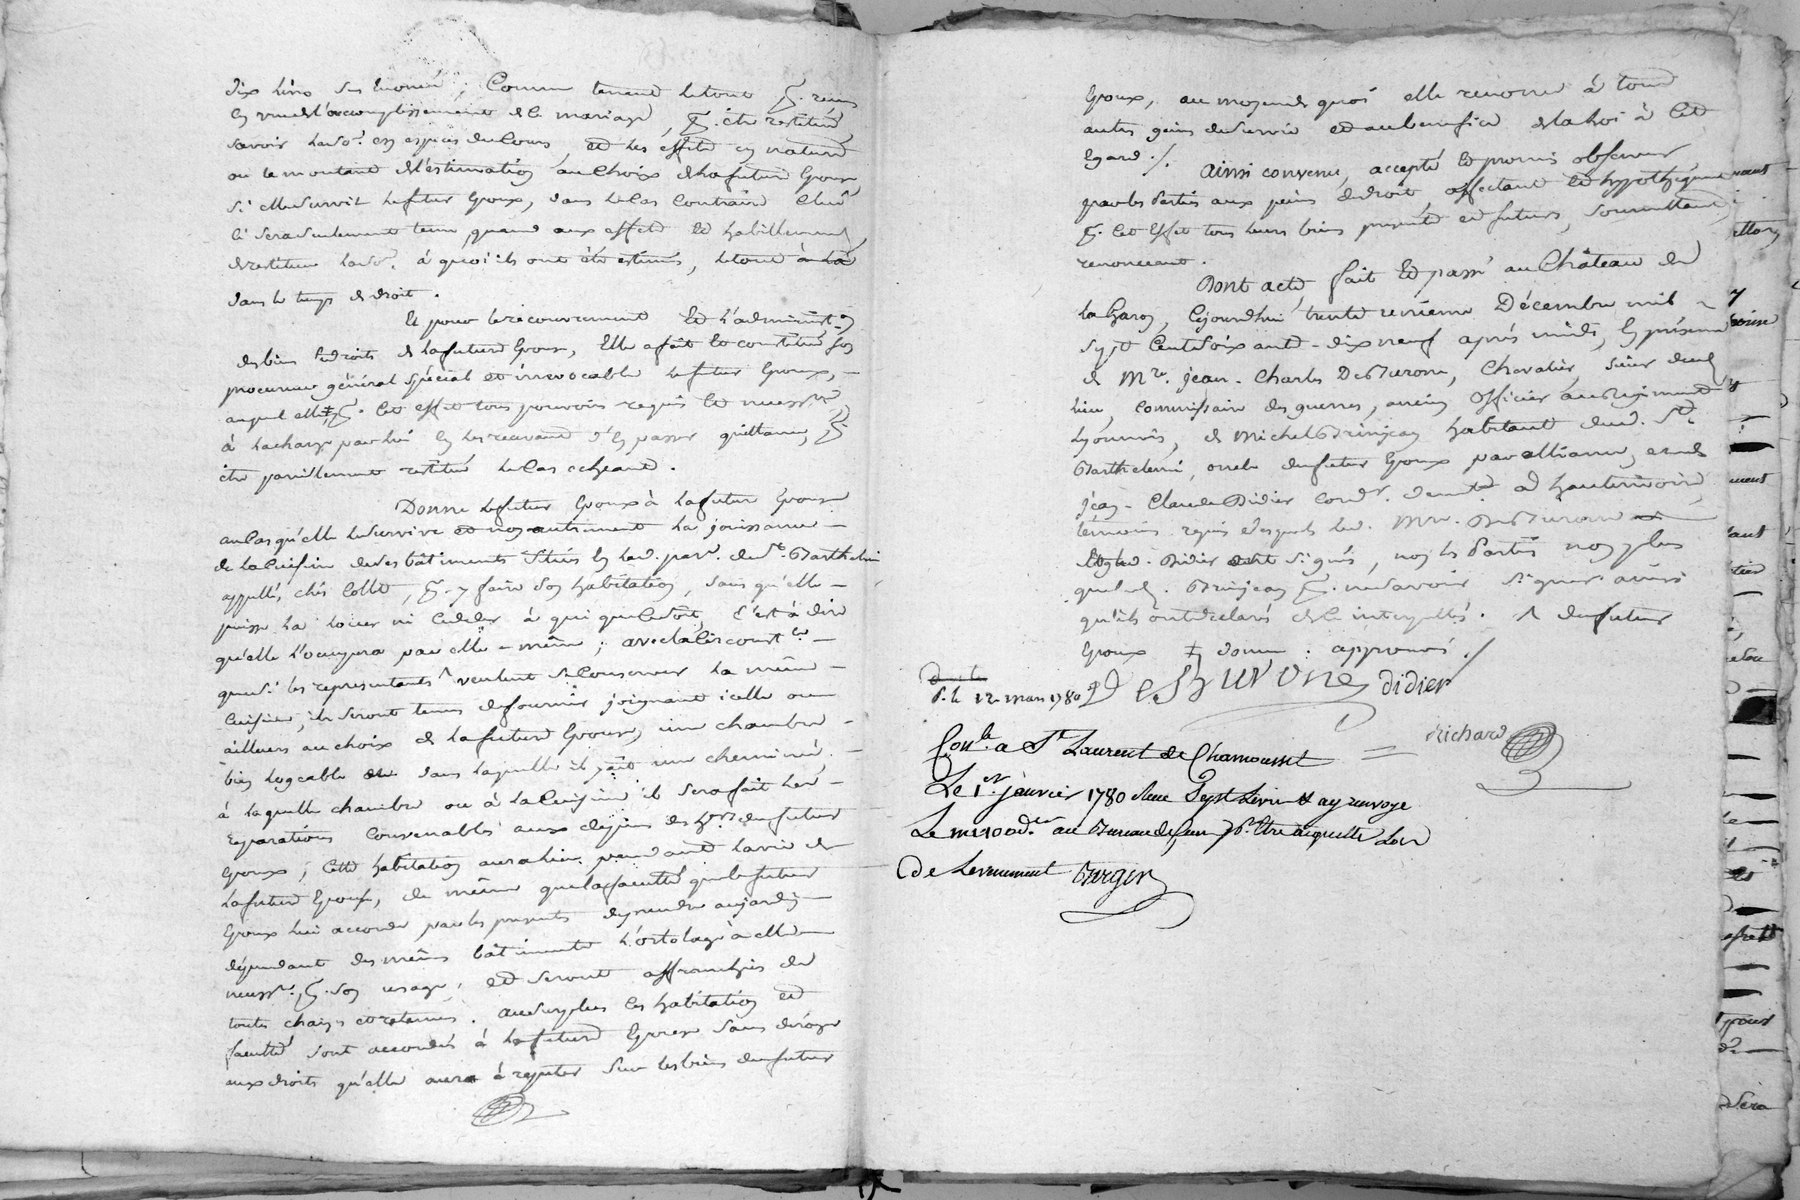 dix livres ; Comme tenant letout pr. remis
en vue de l'accomplissement de ce mariage, pr. être restitué
savoir lad. so. en espèces du Cours, et les effets en nature
ou le montant de l'estimation au Choix de la future Epouse
si elle survit le futur Epoux, dans le Cas Contraire Celui
ci sera seulement tenu, quand aux effets et habillements
de restituer lad. so. à quoi ils ont été estimés, letout
dans le temps de droit.
Et pour le recouvrement et l'administ.on
des biens et droits de la future Epouse, Elle a fait et constitué son
procureur général spécial et irrévocable le futur Epoux,
auquel elle ‡ pr. Cet effet tous pouvoirs requis et necess.res
à la charge par lui en les recevant d'en passer quittance, pr.
être pareillement restitué le Cas echeant.
Donne le futur Epoux à la future Epouse
au Cas qu'elle le survive et non autrement la jouissance
de la Cuisine de ses bâtiments situés en lad. par. de St. Barthelemi
appellés chés Collet, pr. y faire son habitation, sans qu'elle
puisse la louer ni Ceder à qui que Ce soit, C'est à dire
qu'elle l'occupera par elle-même ; avec la Circonst.ce
que si les representants ^ veulent se Conserver la même
Cuisine, ils seront tenus de fournir joignant icelle ou
ailleurs au choix de la future Epouse, une chambre
bien logeable dans laquelle il y ait une cheminée,
à laquelle chambre ou à la Cuisine il sera fait les
reparations Convenables aux dépens des hers. du futur
Epoux ; Cette habitation aura lieu pendant la vie de
la future Epouse, de même que la faculté que le futur
Epoux lui accorde par les presents de prendre au jardin
dépendant des mêmes bâtiments l'ortolage à elle
necess.re pr. son usage, et seront affranchies de
toutes charges et retenues. Au surplus les habitation et
faculté sont accordés à la future Epouse sans deroger
aux droits qu'elle aura à repeter sur les biens du futur
Epoux, au moyen de quoi elle renonce à tous
autres gains de survie et au benefice de la loi à Cet
Egard ./.
Ainsi convenu, accepté et promis observer
par les Parties aux peines de droit, affectant et hypothéquant
pr. Cet Effet tous leurs biens presents et futurs, soumettant,
renonceant.
Dont acte fait et passé au Château de
la Garon, Cejourd'hui trente unieme Décembre mil
sept Cent soixante-dix neuf après midi, en présence
de Mre. jean-Charles DeBurone, Chevalier, sieur dud.
lieu, Commissaire des guerres, ancien Officier au Regiment
Lyonnois, de Michel Brinjean habitant aud. St.
Barthelemi, oncle du futur Epoux par alliance, et de
jean-Claude Didier Cord.r demt. à hauterivoire,
témoins requis desquels led. Mre. DeBurone
et led. Didier ont signés, non les Parties non plus
que led. Brinjean pr. ne savoir signer ainsi
qu'ils ont declarés de ce interpellés. ^ du futur
Epoux ‡ donne : approuvés ./
D. le 12 mars 1780
DeBurone didier
Richard
Con.lé a St Laurent de Chamousset
Le 1.er janvier 1780 Sept Livres
Le au Bureau
de Levenement Burger